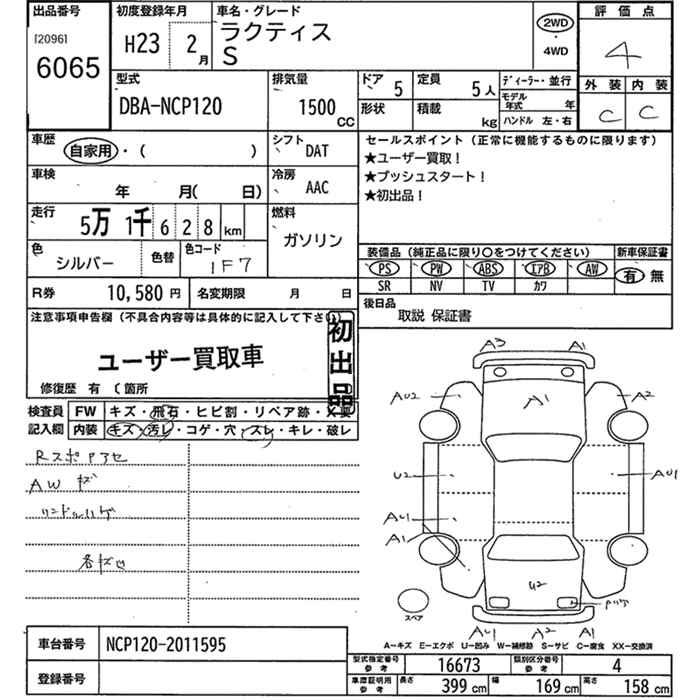 出品番号
[2096]
6065
初度登録年月
H23 2月
車名・グレード
ラクティス
S
2WD
4WD
評価点
4
外装 内装
C C
型式
DBA-NCP120
排気量
1500
CC
ドア 5
定員 5人
形状
積載 kg
ディーラー・並行
モデル年式 年
ハンドル 左・右
車歴
自家用・( )
シフト DAT
車検
年 月( 日)
冷房 AAC
走行
5万 1千 6 2 8 km
燃料
ガソリン
色
シルバー
色替
色コード
1F7
R券 10,580 円
名変期限 月 日
セールスポイント (正常に機能するものに限ります)
★ユーザー買取!
★プッシュスタート!
★初出品!
装備品 (純正品に限り○をつけてください)
新車保証書
PS PW ABS エアB AW
有 無
SR NV TV カワ
後日品
取説 保証書
注意事項申告欄 (不具合内容等は具体的に記入して下さい)
ユーザー買取車
初出品
修復歴 有 〔箇所
検査員
記入欄
FW キズ・飛石・ヒビ割・リペア跡・X要
内装 キズ・汚レ・コゲ・穴・スレ・キレ・破レ
RスポPアセ
AW キズ
各キズ凹
A3 A1
AU2 A1 A2
U2 AU1
AU1
A1
U2
スペア
AU1 A2 A1
A-キズ E-エクボ U-凹み W-補修跡 S-サビ C-腐食 XX-交換済
車台番号 NCP120-2011595
登録番号
型式指定番号 参考 16673
類別区分番号 参考 4
車庫証明用 参考 長さ 399 cm 幅 169 cm 高さ 158 cm